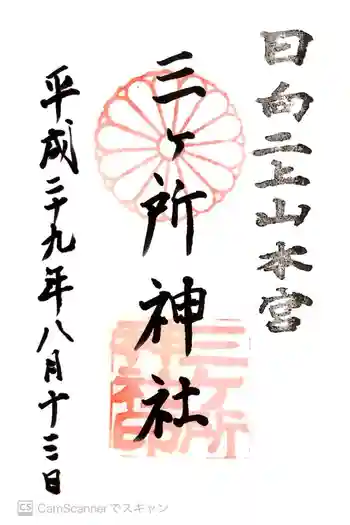 日向二上山本宮
三ヶ所神社
三ヶ所
神社印
平成二十九年八月十三日
CS CamScannerでスキャン